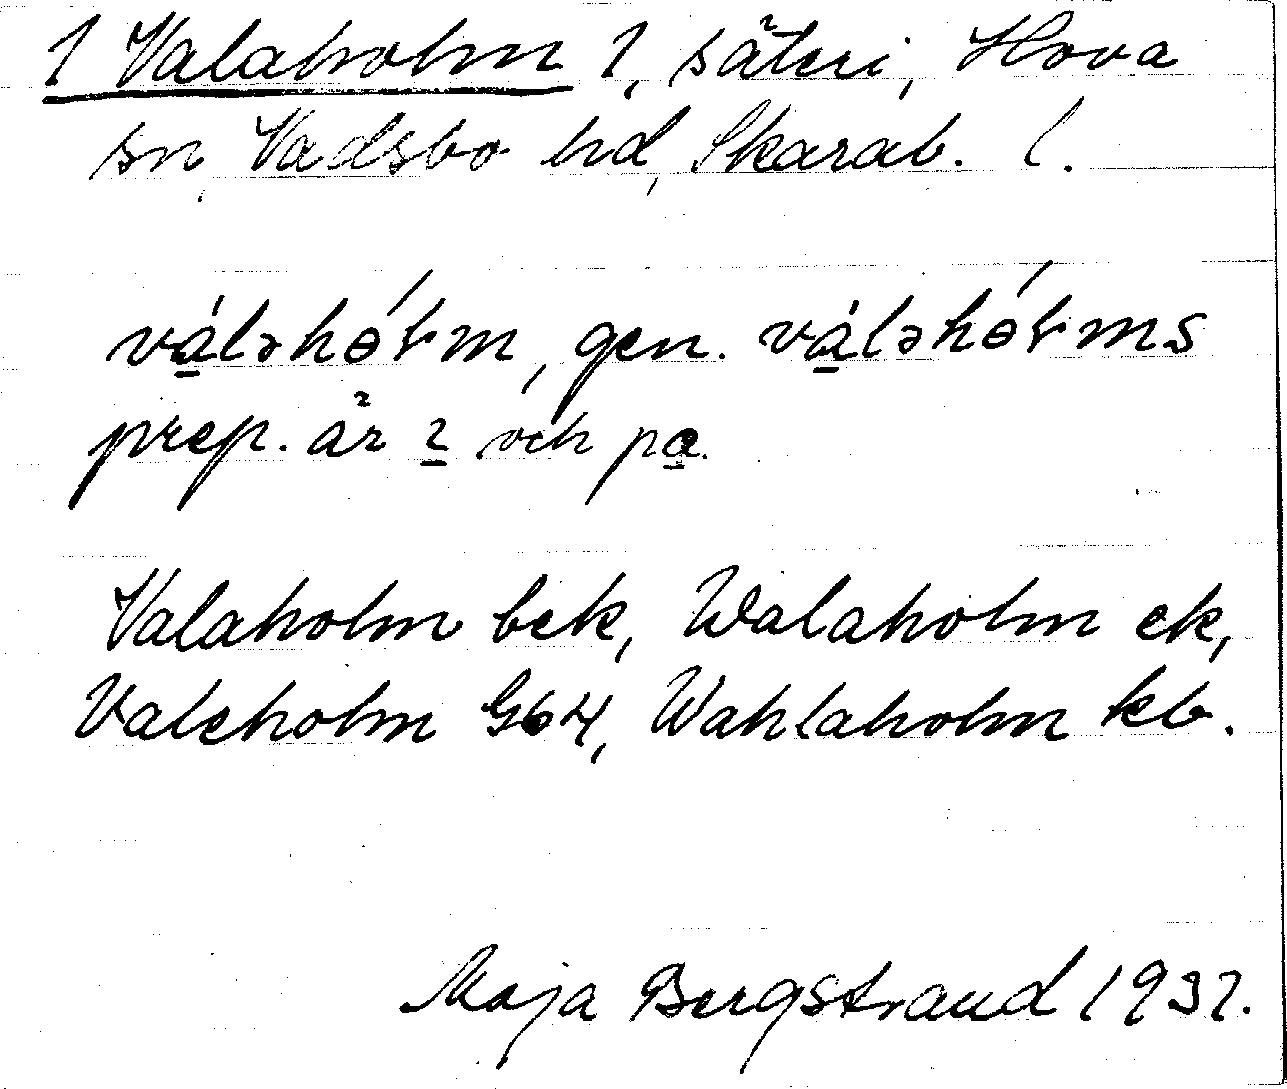 1 Valaholm 1, säteri, Hova
sn, Vadsbo hd, Skarab. l.
válǝhɵ́ɽm, gen. válǝhɵ́ɽms
prep. är ɪ och pa.
Valaholm bek, Walaholm ek,
Valeholm G64, Wahlaholm kb.
Maja Bergstrand 1937.